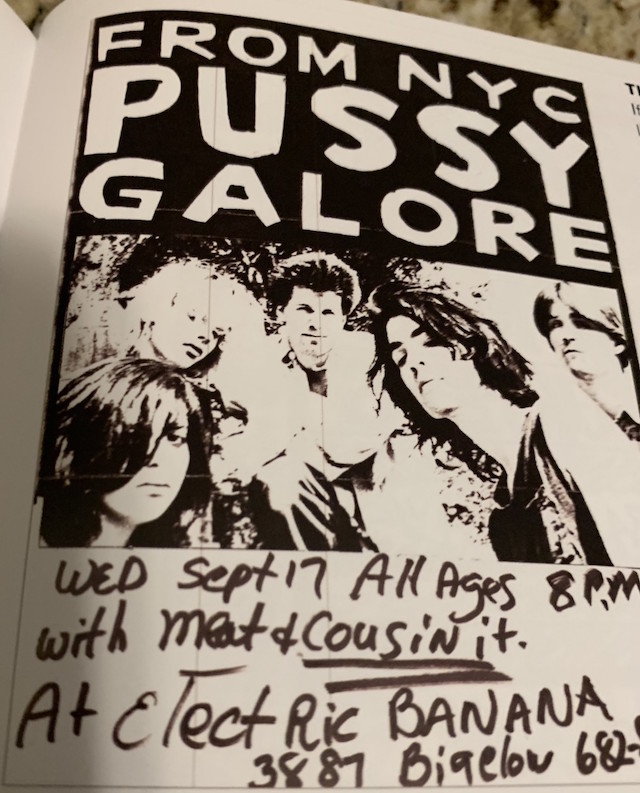 FROM NYC
PUSSY
GALORE
WED Sept 17 All Ages 8 P.M
with Meat & Cousin it.
At Electric BANANA
3887 Bigelow 682-